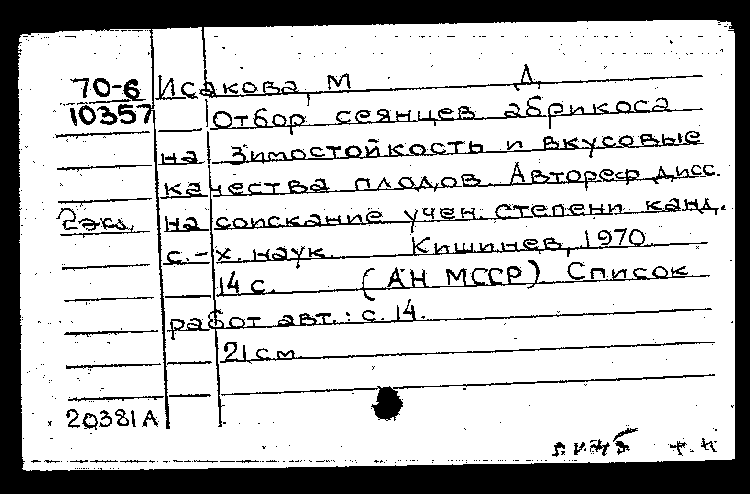 70-6 Исакова, М Д.
10357 Отбор сеянцев абрикоса
на зимостойкость и вкусовые
качества плодов. Автореф дисс.
2 экз. на соискание учен. степени канд.
с.-х. наук. Кишинев, 1970
14 с. (АН МССР) Список
работ авт.: с. 14.
21 см
20381А